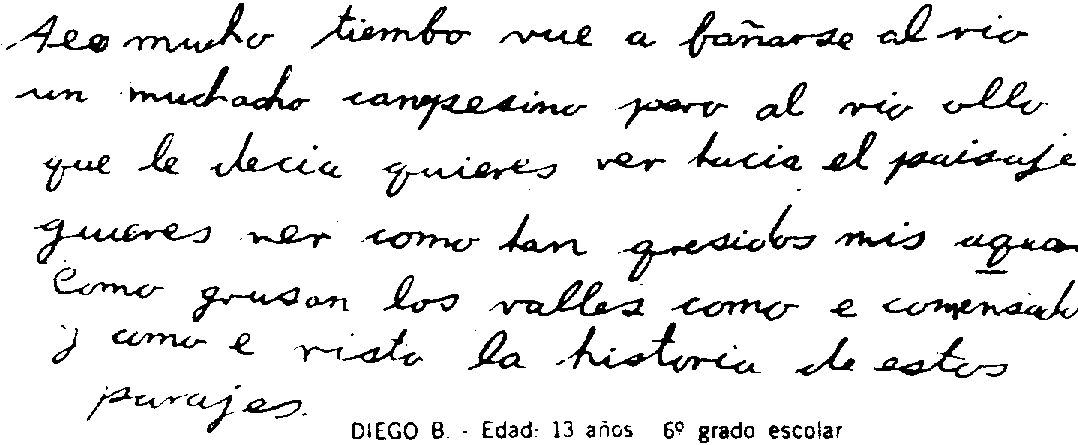 Aeo mucho tiembo vue a bañarse al rio
un muchacho canpesino pero al rio ollo
que le decia quieres ver hacia el paisaje
quieres ver como han qresidos mis agua
Como grusan los valles como e comensado
y como e visto la historia de estos
parajes.
DIEGO B. - Edad: 13 años 6º grado escolar